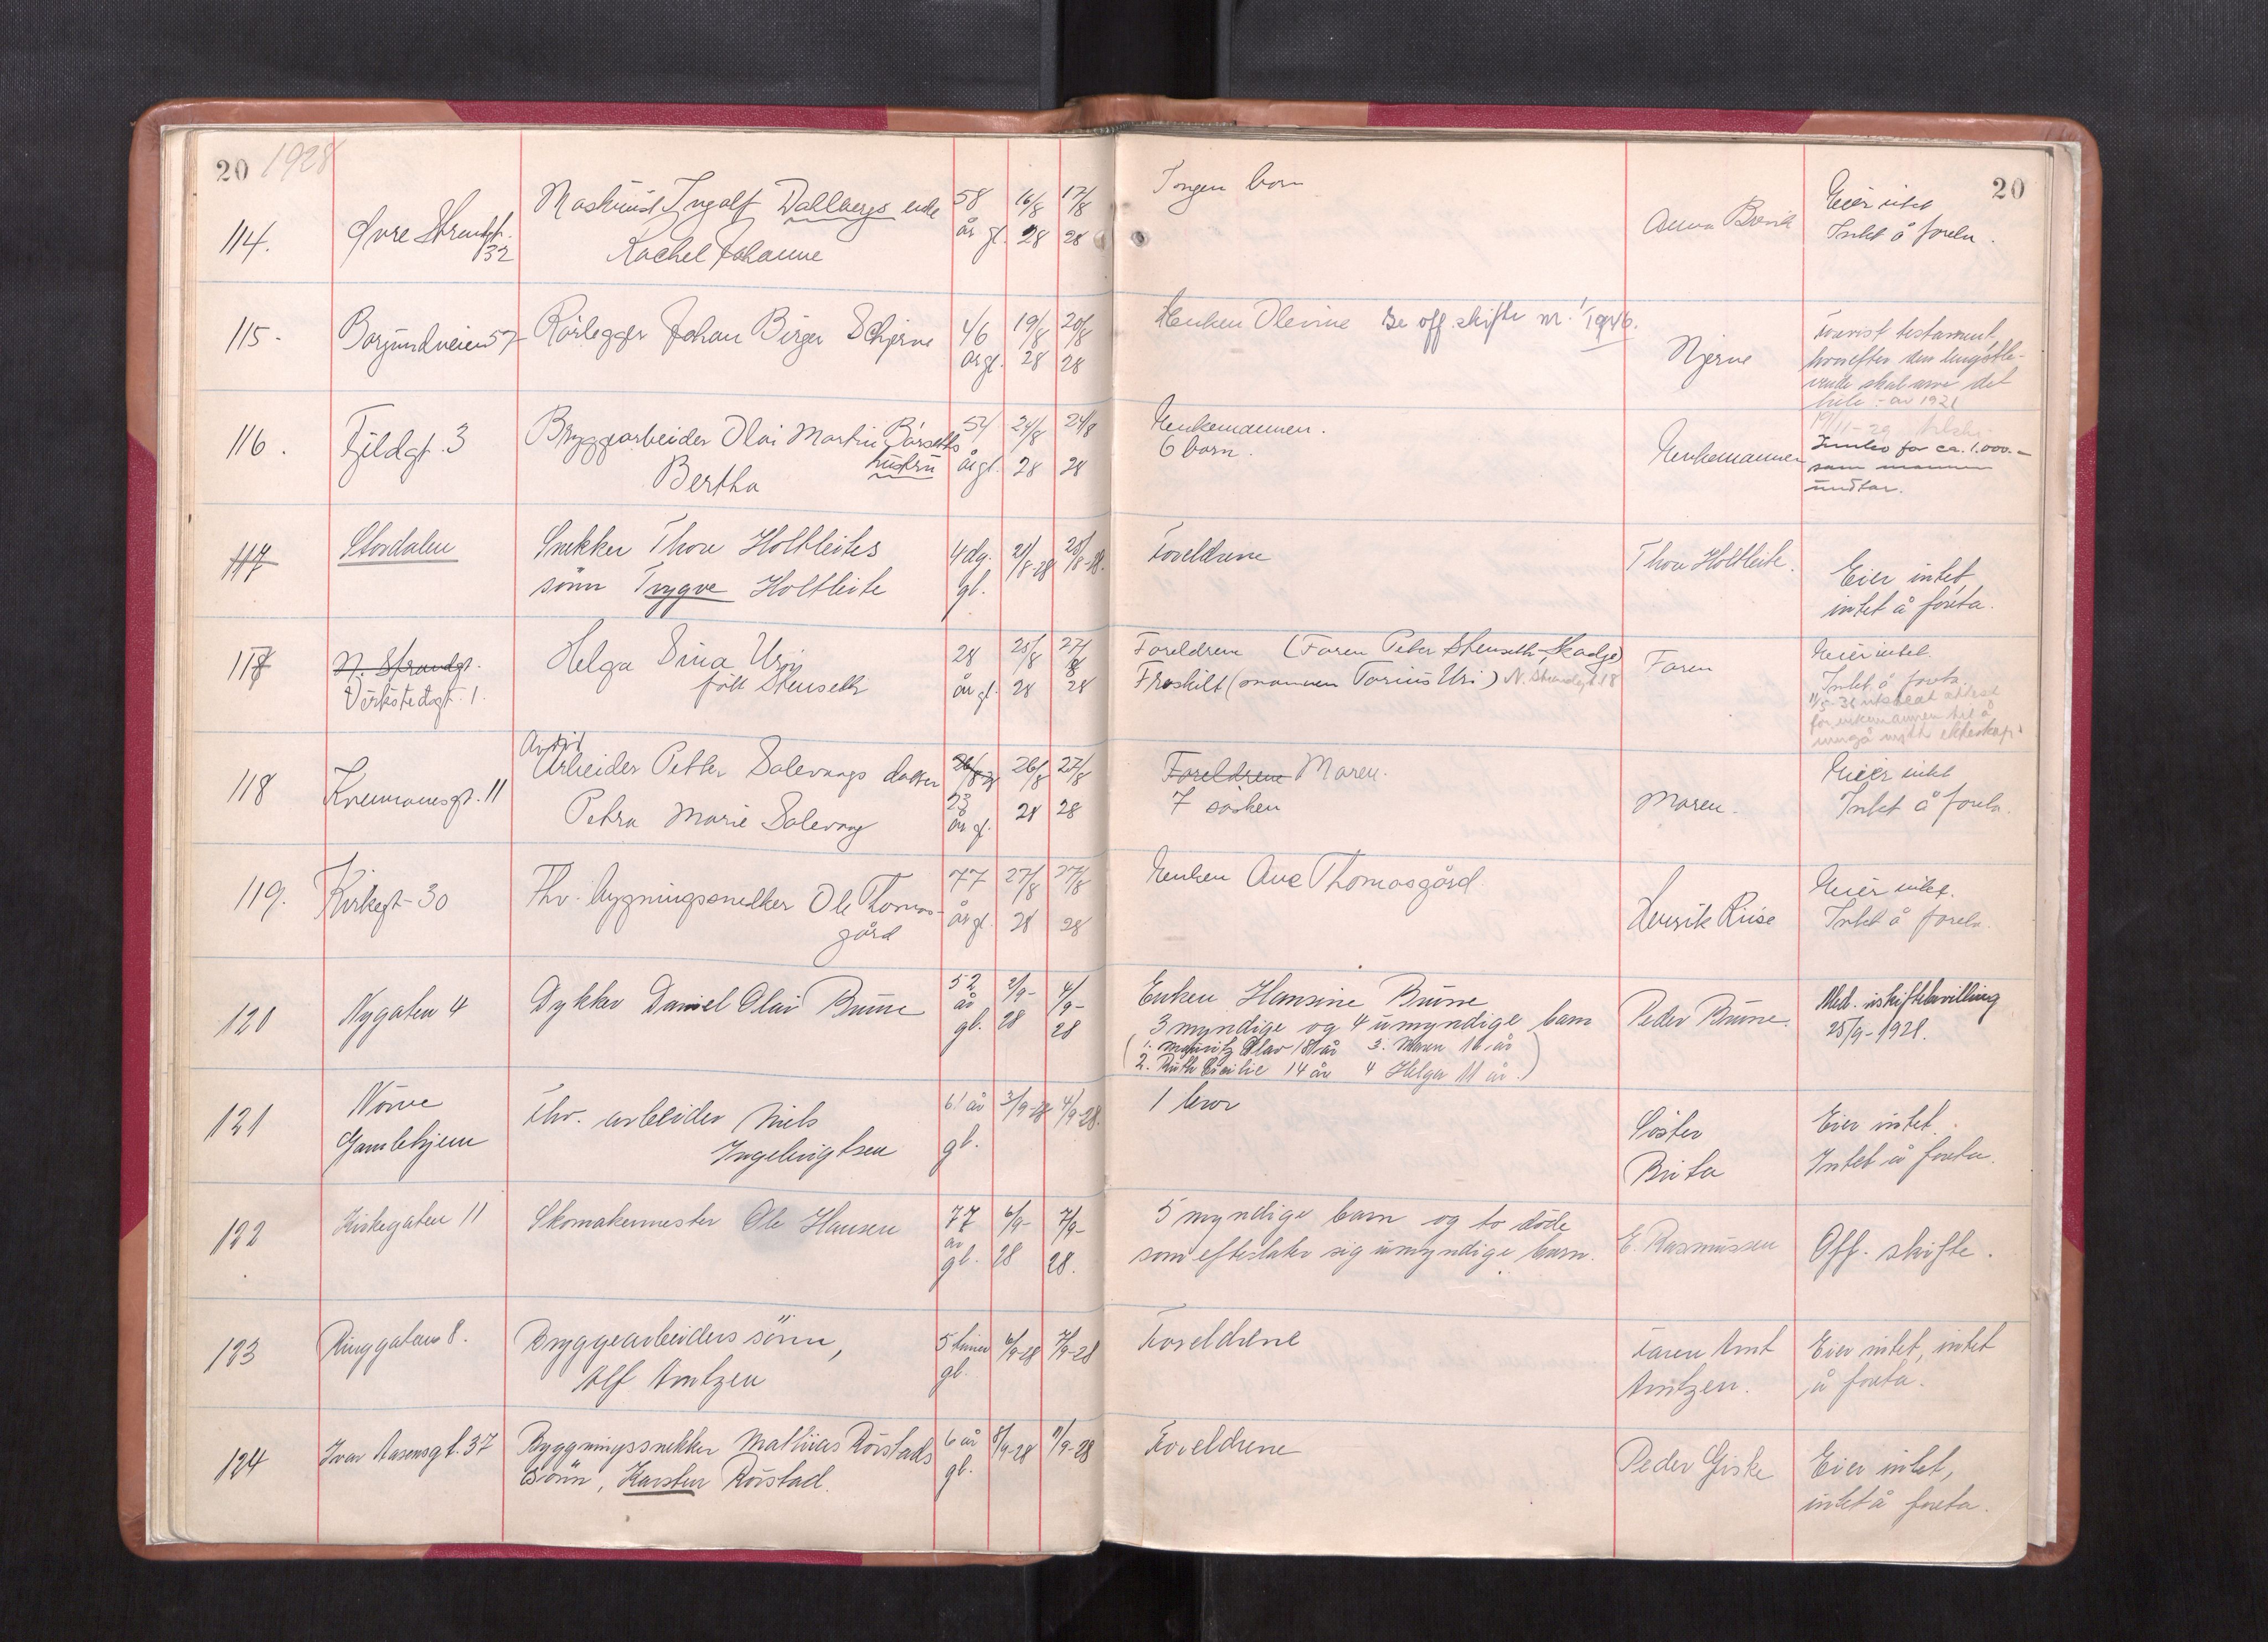 20 1928
20
114. Øvre Strandgt. 32 Maskinist Ingolf Dahlbergs enke Rachel Johanne 58 år gl. 16/8 28 17/8 28 Ingen barn Anna Brevik Eier intet
Intet å foreta.
115. Borgundveien 57 Rörlegger Johan Birger Schjerve 46 år gl. 19/8 28 20/8 28 Enken Olevine Se off. skifte nr. 1/1946. Njerve
testament,
hvorefter den lengstle-
vende skal arve det
hele - av 1921
116. Fjeldgt. 3 Bryggearbeider Olai Martin Pärsetts
hustru
Bertha 54 år gl. 24/8 28 24/8 28 Enkemannen.
6 barn. Enkemannen
Innbo for ca. 1.000.-
som mannen
undtar.
117 Stordalen Snekker Thore Holtleites
sönn Trygve Holtleite 4 dg. gl. 21/8-28 25/8-28. Foreldrene Thore Holtleite. Eier intet,
intet å foreta.
117 N. Strandgt.
Verkstedgt. 1. Helga Sina Uri
född Stenseth 28 år gl. 25/8 28 27/8 28 Foreldrene (Faren Peter Stenseth, Skodje)
Fraskilt (mannen Tarius Uri) N. Strandgt. 18 Faren Eier intet.
Intet å foreta.
11/5-36 utstedt attest
for enkemannen til å
inngå nytt ekteskap.
118 Kremmergt. 11 Avdöd
Arbeider Petter Salevaags datter
Petra Marie Salevaag 23 år gl. 26/8 28 27/8 28 Foreldrene Moren.
7 sösken Moren. Eier intet
Intet å foreta.
119. Kirkegt. 30 Fhv. bygningssnedker Ole Thomas-
gård 77 år gl. 27/8 28 27/8 28 Enken Ane Thomasgård. Henrik Riise Eier intet.
Intet å foreta.
120 Nygaten 4 Dykker Daniel Olai Brune 52 år gl. 2/9-28 4/9-28 Enken Hansine Brune
3 myndige og 4 umyndige barn
(1. Mauritz Olav 18 år 3. Maren 16 år
2. Ruth Cicilie 14 år 4 Helga 11 år.) Peder Brune. Med. uskiftebevilling
25/9-1928.
121 Nörve
Gamlehjem Fhv. arbeider Nils
Ingebrigtsen 61 år gl. 3/9-28 4/9-28. 1 bror Söster
Brita Eier intet.
Intet å foreta.
122 Kirkegaten 11 Skomakermester Ole Hansen 77 år gl. 6/9-28 7/9-28. 5 myndige barn og to döde
som efterlater sig umyndige barn. E. Rasmussen Off. skifte.
123 Ringgaten 8. Bryggearbeiders sönn,
Alf Arntzen 5 timer gl. 6/9-28 7/9-28 Foreldrene Faren Arnt
Arntzen. Eier intet, intet
å foreta.
124 Ivar Aasensgt. 37 Byggningssnekker Mathias Rörstads
sönn, Karsten Rörstad. 6 år gl. 8/9-28 11/9-28 Foreldrene Peder Giske Eier intet,
intet å foreta.